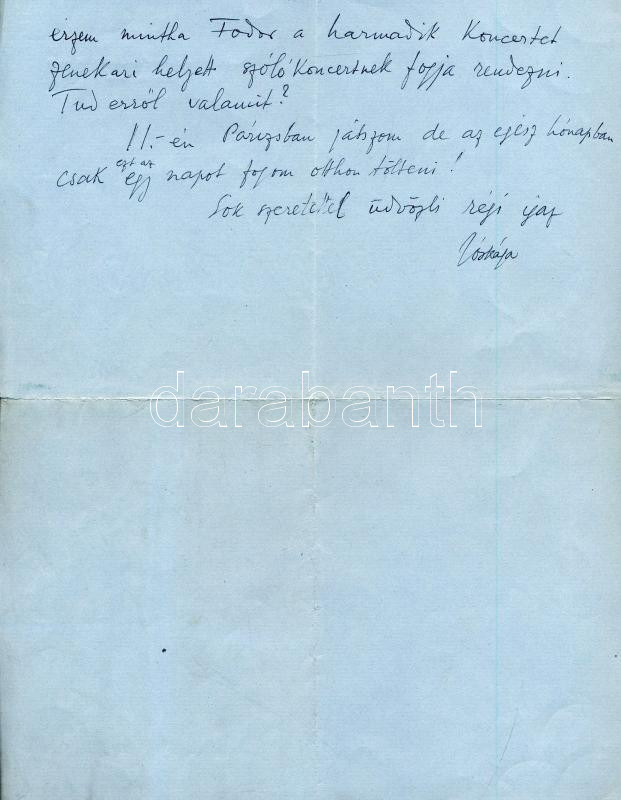 érzem mintha Fodor a harmadik Koncertet
zenekari helyett szólókoncertnek fogja rendezni.
Tud erről valamit?
11.-én Párizsban játszom de az egész hónapban
csak ezt az egy napot fogom otthon tölteni!
Sok szeretettel üdvözli régi igaz
darabanth